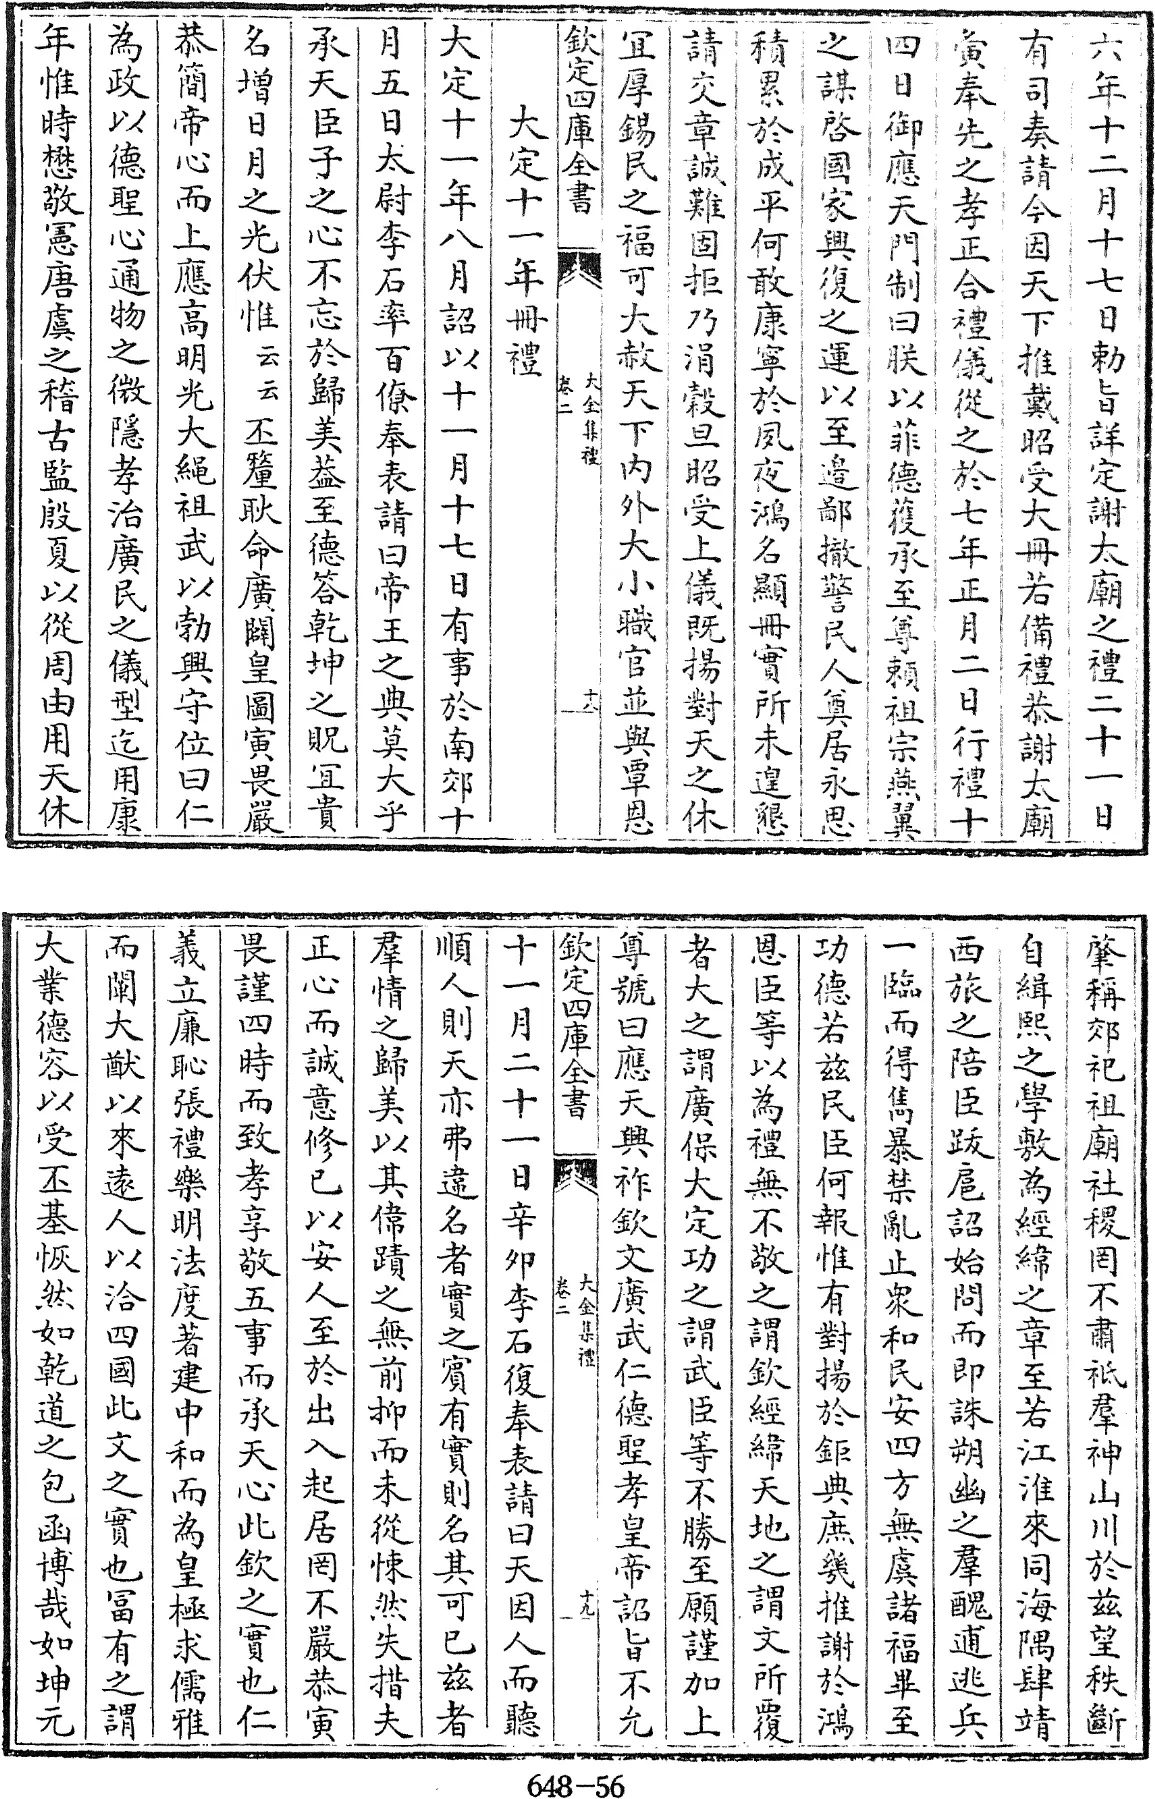 六年十二月十七日勅旨詳定謝太廟之禮二十一日
有司奏請今因天下推戴昭受大冊若備禮恭謝太廟
寅奉先之孝正合禮儀從之於七年正月二日行禮十
四日御應天門制曰朕以菲德獲承至尊賴祖宗燕翼
之謀啓國家興復之運以至邉鄙撤警民人奠居永思
積累於成平何敢康寧於夙夜鴻名顯冊實所未遑懇
請交章誠難固拒乃涓穀旦昭受上儀既揚對天之休
冝厚錫民之福可大赦天下内外大小職官並與覃恩
欽定四庫全書
大金集禮
卷二
十八
大定十一年冊禮
大定十一年八月詔以十一月十七日有事於南郊十
月五日太尉李石率百僚奉表請曰帝王之典莫大乎
承天臣子之心不忘於歸美葢至德答乾坤之貺冝貴
名增日月之光伏惟云云丕釐耿命廣闢皇圖寅畏嚴
恭簡帝心而上應高明光大繩祖武以勃興守位曰仁
為政以德聖心通物之微隱孝治廣民之儀型迄用康
年惟時懋敬憲唐虞之稽古監殷夏以從周由用天休
肇稱郊祀祖廟社稷罔不肅祗羣神山川於兹望秩斷
自緝熙之學敷為經緯之章至若江淮來同海隅肆靖
西旅之陪臣跋扈詔始問而即誅朔幽之羣醜逋逃兵
一臨而得雋暴禁亂止衆和民安四方無虞諸福畢至
功德若兹民臣何報惟有對揚於鉅典庶幾推謝於鴻
恩臣等以為禮無不敬之謂欽經緯天地之謂文所覆
者大之謂廣保大定功之謂武臣等不勝至願謹加上
尊號曰應天興祚欽文廣武仁德聖孝皇帝詔旨不允
欽定四庫全書
大金集禮
卷二
十九
十一月二十一日辛卯李石復奉表請曰天因人而聽
順人則天亦弗違名者實之賓有實則名其可已兹者
羣情之歸美以其偉蹟之無前抑而未從悚然失措夫
正心而誠意修已以安人至於出入起居罔不嚴恭寅
畏謹四時而致孝享敬五事而承天心此欽之實也仁
義立廉恥張禮樂明法度著建中和而為皇極求儒雅
而闡大猷以來遠人以洽四國此文之實也冨有之謂
大業德容以受丕基恢然如乾道之包函博哉如坤元
648-56